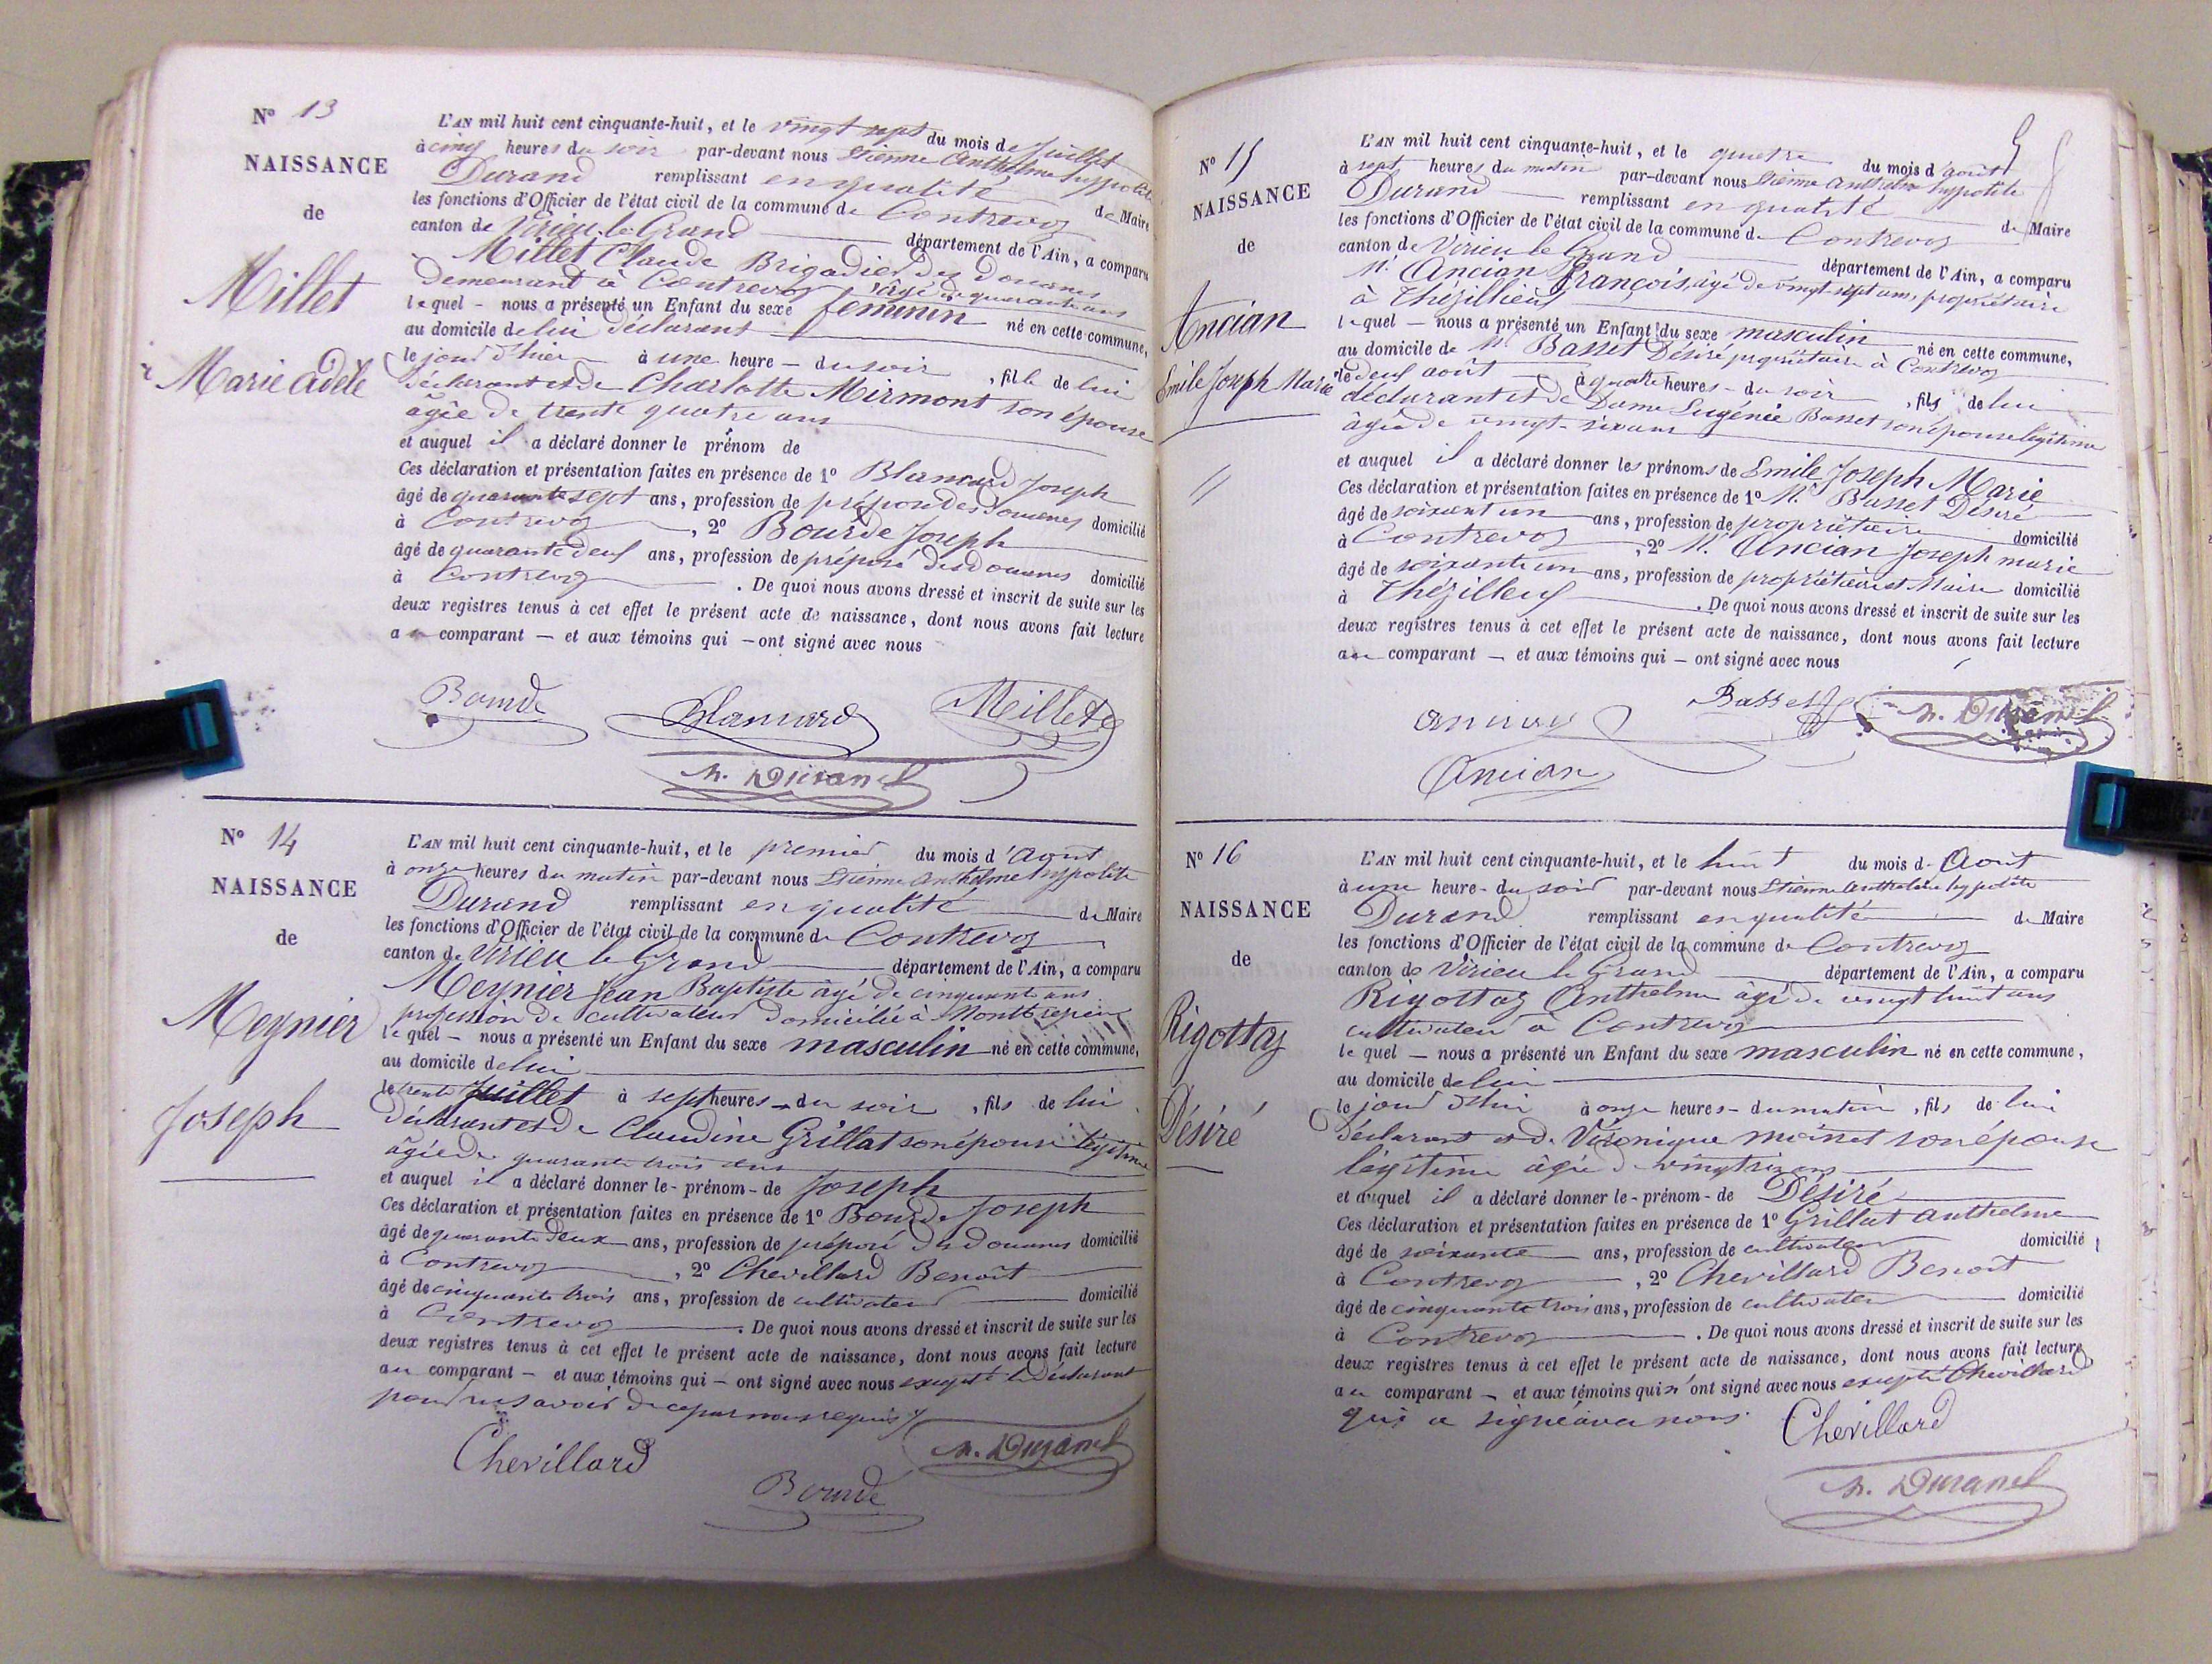 N° 13
NAISSANCE
de
Millet
Marie adèle
L'AN mil huit cent cinquante-huit, et le vingt sept du mois de Juillet
à cinq heures du soir par-devant nous Etienne Anthelme hyppolite
Durand remplissant en qualité de Maire
les fonctions d'Officier de l'état civil de la commune de Contrevoz
canton de Virieu le Grand département de l'Ain, a comparu
Millet Claude Brigadier des Douanes
demeurant à Contrevoz âgé de quarante ans
lequel - nous a présenté un Enfant du sexe feminin né en cette commune,
au domicile de lui déclarant
le jour d'hier à une heure - du soir, fille de lui
déclarant et de Charlotte Mirmont son épouse
âgée de trente quatre ans
et auquel il a déclaré donner le prénom de
Ces déclaration et présentation faites en présence de 1° Blancard Joseph
âgé de quarante sept ans, profession de préposé des douanes domicilié
à Contrevoz, 2° Bourde Joseph
âgé de quarante deux ans, profession de préposé des douanes domicilié
à Contrevoz. De quoi nous avons dressé et inscrit de suite sur les
deux registres tenus à cet effet le présent acte de naissance, dont nous avons fait lecture
au comparant - et aux témoins qui - ont signé avec nous
Bourde Blancard Millet
h. Durand
N° 14
NAISSANCE
de
Meynier
Joseph
L'AN mil huit cent cinquante-huit, et le premier du mois d'Aout
à onze heures du matin par-devant nous Etienne anthelme hyppolite
Durand remplissant en qualité de Maire
les fonctions d'Officier de l'état civil de la commune de Contrevoz
canton de Virieu le Grand département de l'Ain, a comparu
Meynier Jean Baptiste âgé de cinquante ans
profession de cultivateur domicilié à
lequel - nous a présenté un Enfant du sexe masculin né en cette commune,
au domicile de lui
le trente Juillet à sept heures - du soir, fils de lui
déclarant et de Claudine Grillat son épouse légitime
âgée de quarante trois ans
et auquel il a déclaré donner le - prénom - de Joseph
Ces déclaration et présentation faites en présence de 1° Bourde Joseph
âgé de quarante deux ans, profession de préposé des douanes domicilié
à Contrevoz, 2° Chevillard Benoît
âgé de cinquante trois ans, profession de cultivateur domicilié
à Contrevoz. De quoi nous avons dressé et inscrit de suite sur les
deux registres tenus à cet effet le présent acte de naissance, dont nous avons fait lecture
au comparant - et aux témoins qui - ont signé avec nous excepté le déclarant
pour ne savoir de ce par nous requis
Chevillard h. Durand
Bourde
N° 15
NAISSANCE
de
Ancian
Emile Joseph Marie
L'AN mil huit cent cinquante-huit, et le quatre du mois d'aout
à sept heures du matin par-devant nous Etienne anthelme hyppolite
Durand remplissant en qualité de Maire
les fonctions d'Officier de l'état civil de la commune de Contrevoz
canton de Virieu le Grand département de l'Ain, a comparu
Mr. Ancian François, âgé de vingt-sept ans, propriétaire
à Thézillieux
lequel - nous a présenté un Enfant du sexe masculin né en cette commune,
au domicile de Mr Basset Désiré propriétaire à Contrevoz
le deux août à quatre heures - du soir, fils de lui
déclarant et de Dame Eugénie Basset son épouse légitime
âgée de vingt-six ans
et auquel il a déclaré donner les prénoms de Emile Joseph Marie
Ces déclaration et présentation faites en présence de 1° Mr. Basset Désiré
âgé de soixant un ans, profession de propriétaire domicilié
à Contrevoz, 2° Mr. Ancian Joseph marie
âgé de soixante un ans, profession de propriétaire et Maire domicilié
à Thézilleux. De quoi nous avons dressé et inscrit de suite sur les
deux registres tenus à cet effet le présent acte de naissance, dont nous avons fait lecture
au comparant - et aux témoins qui - ont signé avec nous
ancian Basset h. Durand
Ancian
N° 16
NAISSANCE
de
Rigottaz
Désiré
L'AN mil huit cent cinquante-huit, et le huit du mois d'Aout
à une heure - du soir par-devant nous Etienne anthelme hyppolite
Durand remplissant en qualité de Maire
les fonctions d'Officier de l'état civil de la commune de Contrevoz
canton de Virieu le Grand département de l'Ain, a comparu
Rigottaz Anthelme âgé de vingt huit ans
cultivateur à Contrevoz
lequel - nous a présenté un Enfant du sexe masculin né en cette commune,
au domicile de lui
le jour d'hui à onze heures - du matin, fils de lui
déclarant et de Véronique son épouse
légitime âgée de vingt six ans
et auquel il a déclaré donner le - prénom - de Désiré
Ces déclaration et présentation faites en présence de 1° Grillat anthelme
âgé de soixante ans, profession de cultivateur domicilié
à Contrevoz, 2° Chevillard Benoît
âgé de cinquante trois ans, profession de cultivateur domicilié
à Contrevoz. De quoi nous avons dressé et inscrit de suite sur les
deux registres tenus à cet effet le présent acte de naissance, dont nous avons fait lecture
au comparant - et aux témoins qui n'ont signé avec nous excepté Chevillard
qui a signé avec nous. Chevillard
h. Durand